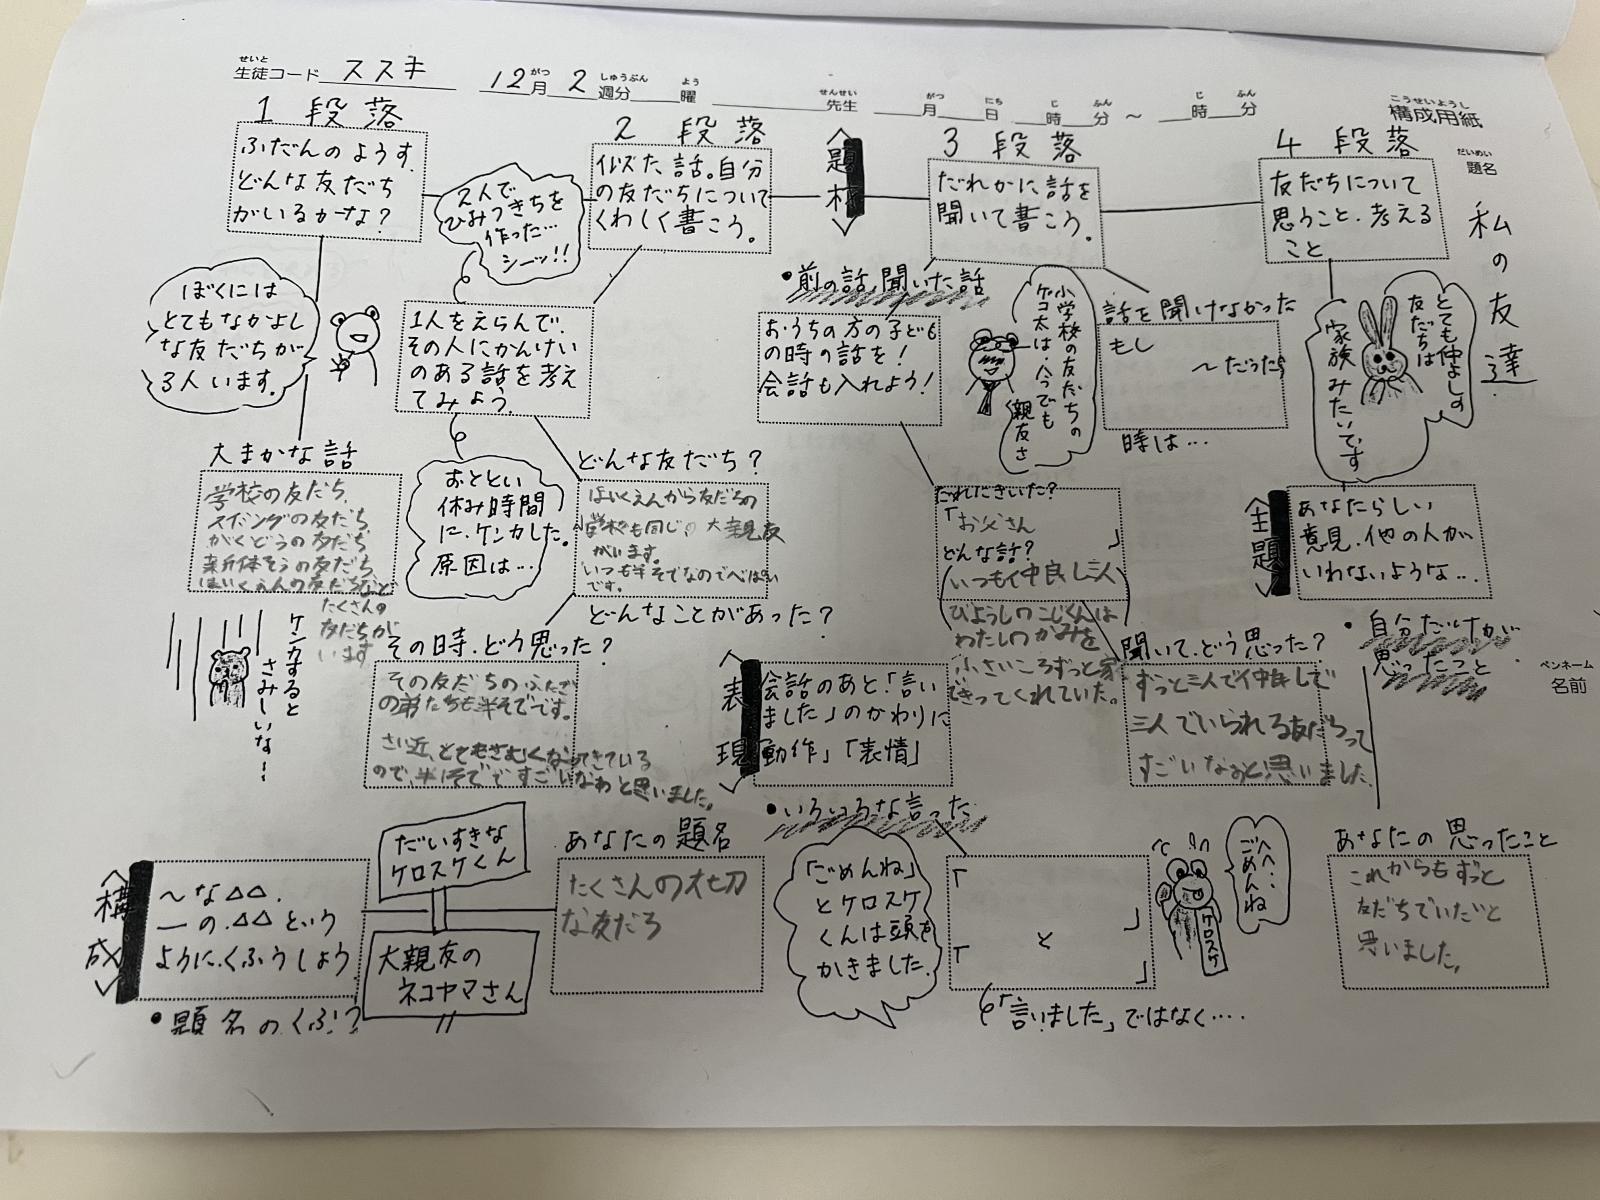 生徒コード ススキ 12月2週分 曜 先生 月 日 時 分 ～ 時 分
せいと がつ しゅうぶん よう せんせい がつ にち じ ふん じ ふん
こうせいようし
構成用紙
だいめい
題名
私の友達
ペンネーム
名前
1段落
ふだんのようす.
どんな友だち
がいるかな?
ぼくには
とてもなかよし
な友だちが
3人います。
大まかな話
学校の友だち、
スイミングの友だち、
がくどうの友だち
新体そうの友だち
ほいくえんの友だちなど
たくさんの
友だちが
います
ケンカすると
さみしいな…!
2段落
似た話。自分
の友だちについて
くわしく書こう。
2人で
ひみつきちを
作った…
シーッ!!
1人をえらんで.
その人にかんけい
のある話を考え
てみよう.
おととい
休み時間
に、ケンカした。
原因は…
どんな友だち?
ほいくえんから友だちの
学校も同じ 大親友
がいます。
いつも半そでなので
です。
どんなことがあった?
その時、どう思った?
その友だちのふたご
の弟たちも半そでです。
さい近、とてもさむくなってきている
ので、半そでですごいなあと思いました。
<題材>
3段落
だれかに話を
聞いて書こう。
・前の話、聞いた話
おうちの方の子ども
の時の話を!
会話も入れよう!
小学校の友だちの
ケコ太は.今でも
親友さ
話を聞けなかった
もし
～だったら
時は…
だれにきいた?
「お父さん
」
どんな話?
いつも仲良し三人
びようしのこじくんは
わたしのかみを
小さいころずっと家
できってくれていた。
聞いて、どう思った?
ずっと三人で仲良しで
三人でいられる友だちって
すごいなあと思いました
<表現>
会話のあと「言い
ました」のかわりに
「動作」「表情」
・いろいろな言った
「ごめんね」
とケロスケ
くんは頭を
かきました.
「
」
と
「
」
と「言いました」ではなく…
へへ…
ごめんね
ケロスケ
4段落
友だちについて
思うこと.考える
こと
とても仲よしの
友だちは
家族みたいです
<主題>
あなたらしい
意見.他の人が
いわないような…
・自分だけが
思ったこと
あなたの思ったこと
これからもずっと
友だちでいたいと
思いました。
<構成>
～な△△.
―の.△△という
ように.くふうしよう
・題名のくふう
だいすきな
ケロスケくん
大親友の
ネコヤマさん
あなたの題名
たくさんの大切
な友だち